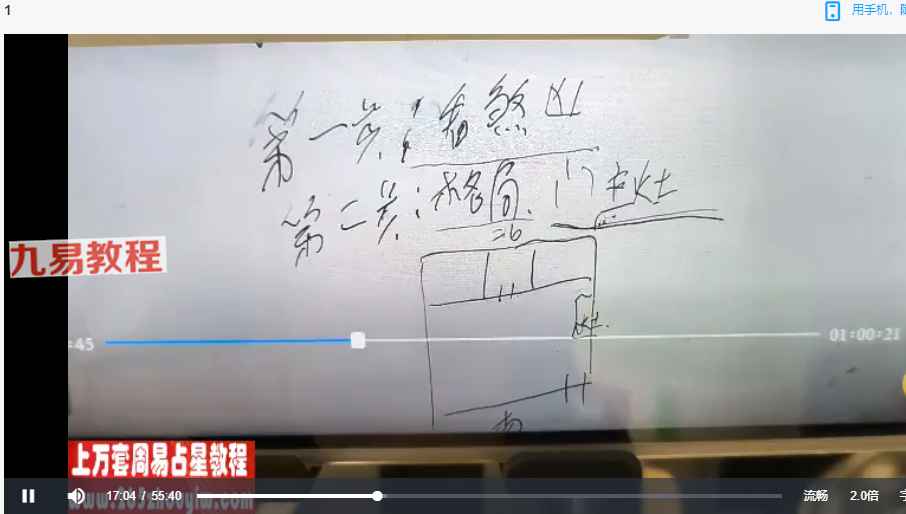 1
用手机、
第一步：看煞凶
第二步：格局、门主灶
北
九易教程
灶
:45
01:00:21
南
上万套周易占星教程
17:04 / 55:40
流畅
2.0倍